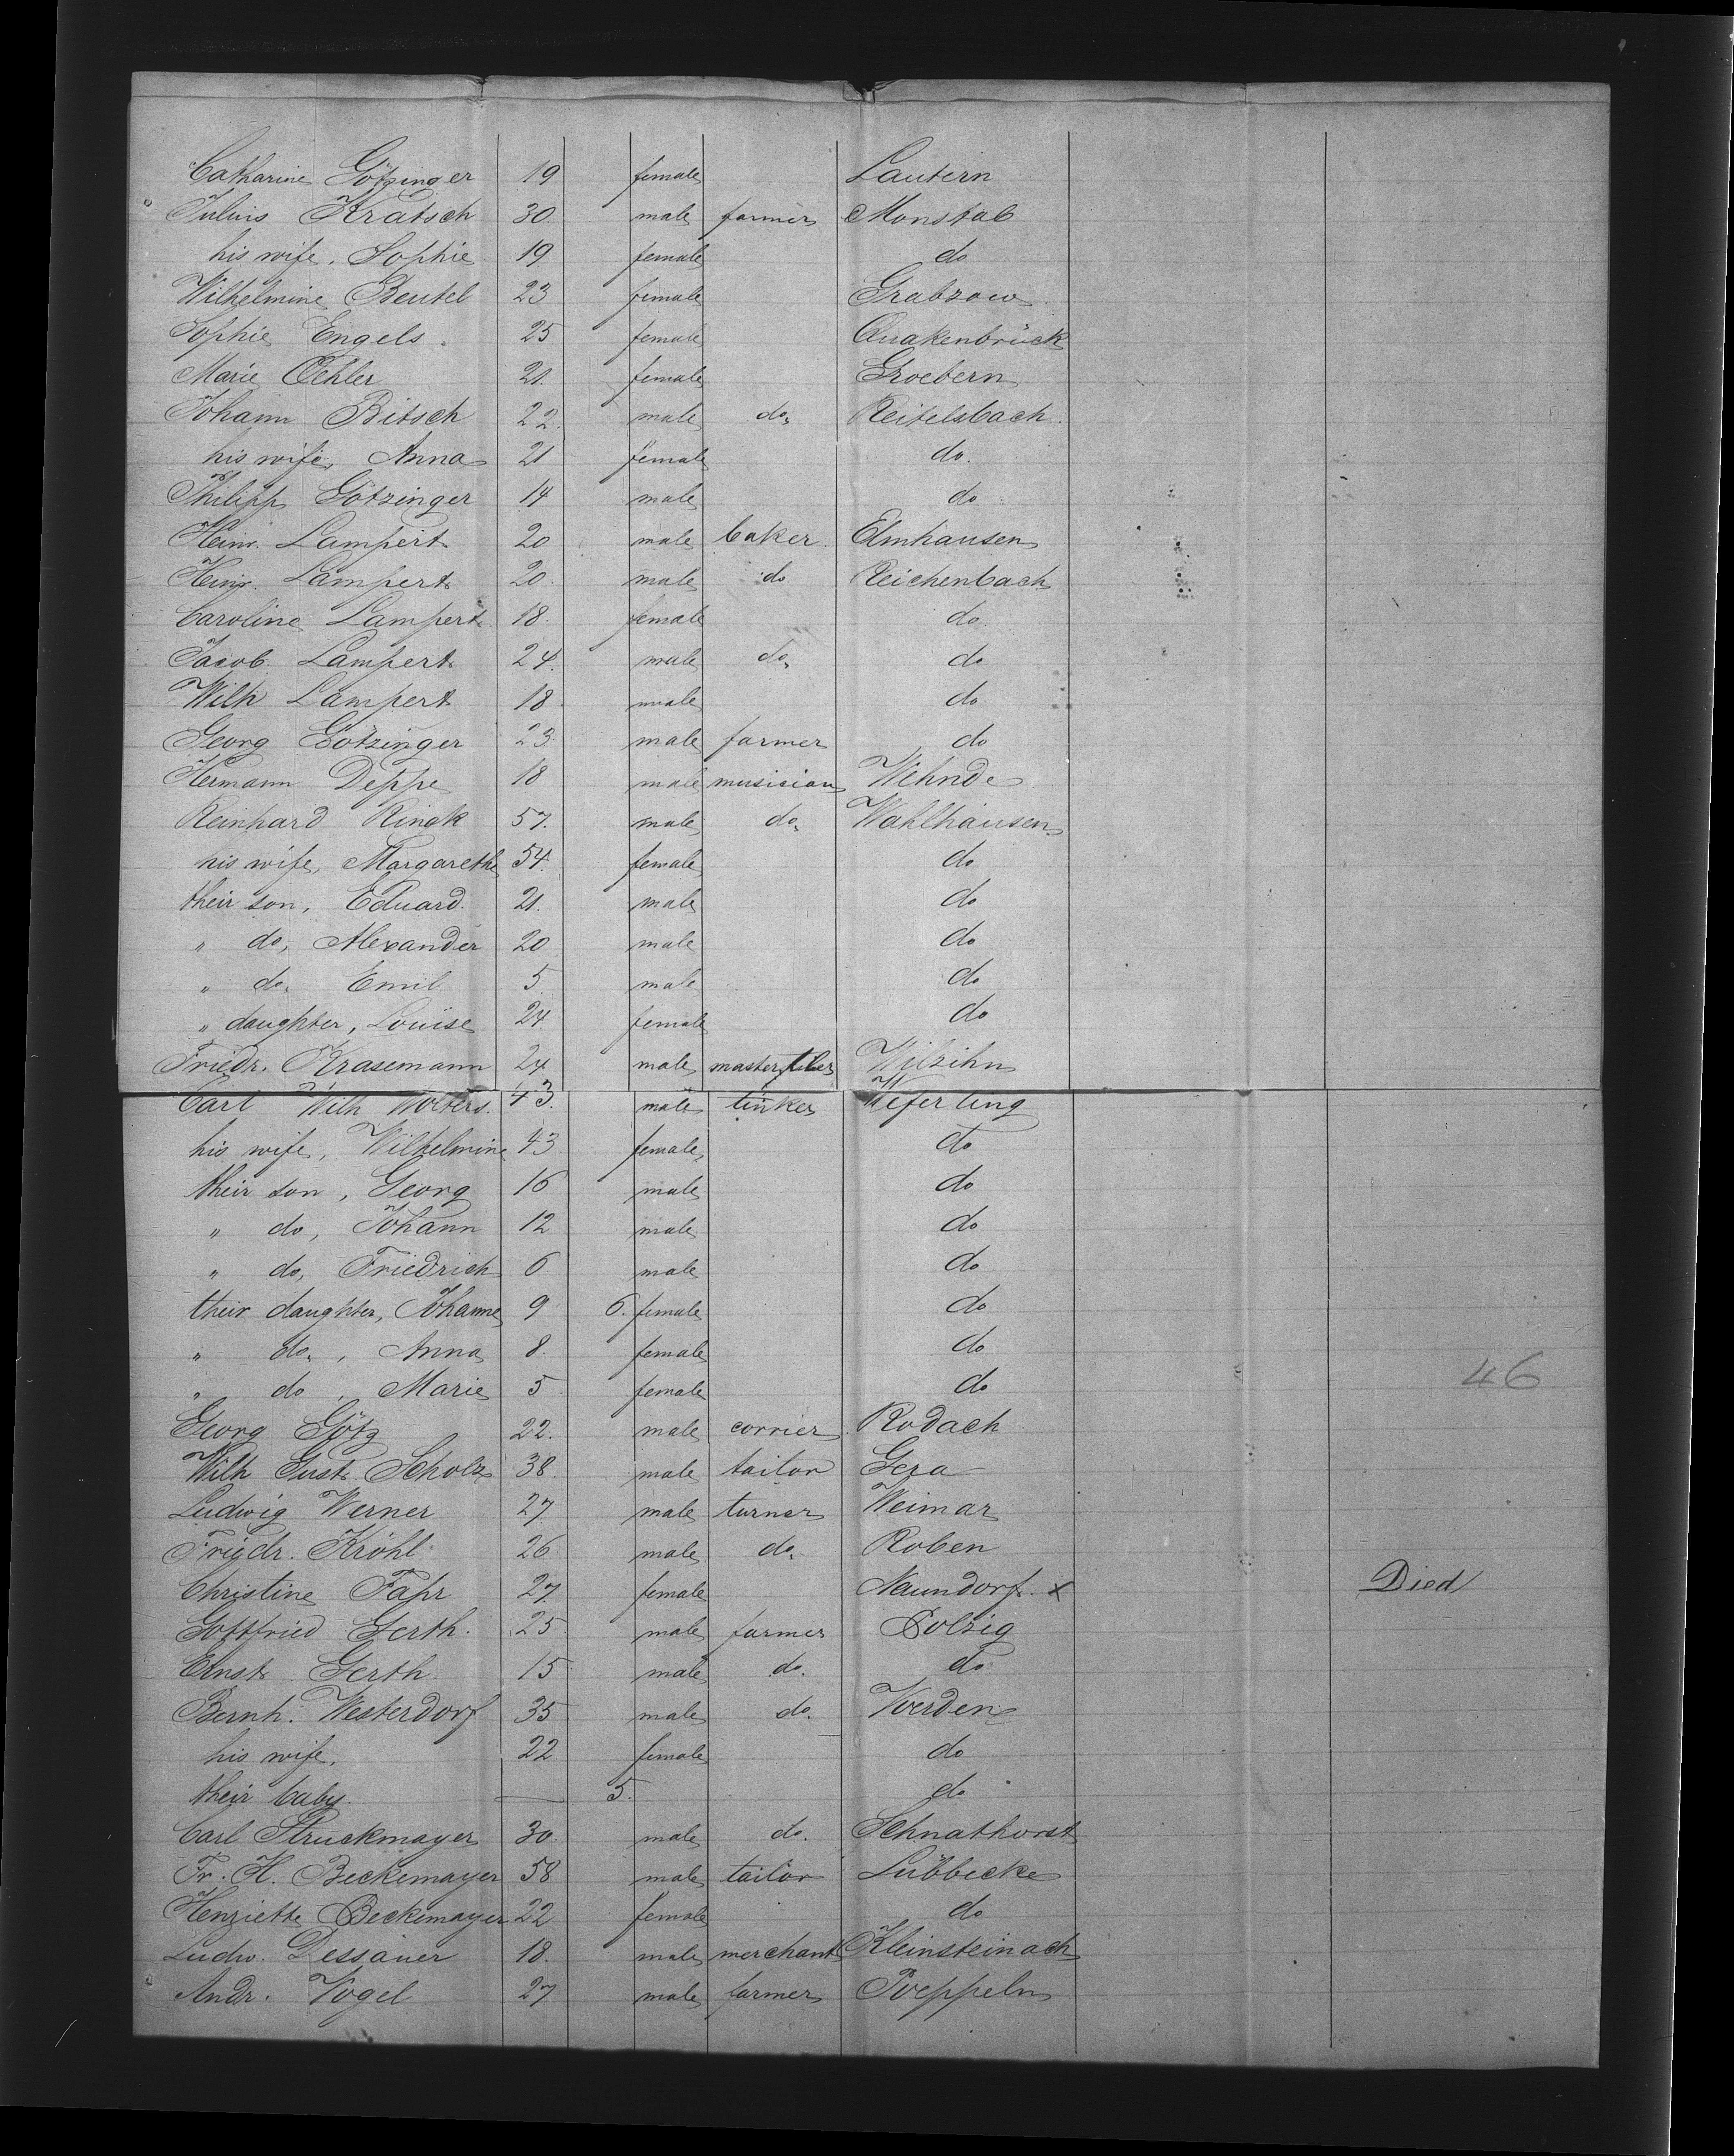 Catharine Götzinger 19 female Lautern
" Julius Kratsch 30. male farmer Monstab
his wife, Sophie 19 female do
Wilhelmine Beutel 23 female Grabzow
Sophie Engels. 25 female Quakenbrück
Marie Oehler 21. female Groebern
Johann Bitsch 22. male do. Reitelsbach.
his wife, Anna 21 female do.
Philipp Götzinger 14 male do
Heinr. Lampert 20 male baker. Elmhausen
Heinr. Lampert 20. male do Reichenbach
Caroline Lampert 18. female do.
Jacob Lampert 24. male do. do
Wilh Lampert 18. male do
Georg Götzinger 23. male farmer do
Hermann Deppe 18 male musician Wehnde
Reinhard Rinck 57. male do. Wahlhausen
his wife, Margarethe 54. female do
their son, Eduard. 21. male do
" do, Alexander 20 male do
" do. Emil 5 male do
" daughter, Louise 24 female do
Friedr. Krasemann 24 male master Wilzihn
Carl Wilh Wolters. 43. male tinker Weferling
his wife, Wilhelmine 43 female do
their son, Georg 16 male do
" do, Johann 12 male do
" do, Friedrich 6 male do
their daughter, Johanne 9 6. female do
" do., Anna 8. female do
" do, Marie 5 female do
46
Georg Götz 22. male corrier Rodach
Wilh Gust. Scholz 38. male tailor Gera
Ludwig Werner 27 male turner Weimar
Friedr. Kröhl 26 male do. Roben
Christine Fahr 27. female Naundorf x Died
Gottfried Gerth. 25 male farmer Dolzig
Ernst Gerth. 15 male do. do
Bernh. Westerdorf 35 male do. Voerden
his wife, 22 female do
their baby. — 5. do
Carl Struckmayer 30. male do. Schnathorst
Fr. H. Beckemayer 58 male tailor Lübbecke
Henriette Beckemayer 22 female do
Ludw. Dessauer 18. male merchant Kleinsteinach
Andr. Vogel 27 male farmer Poeppeln